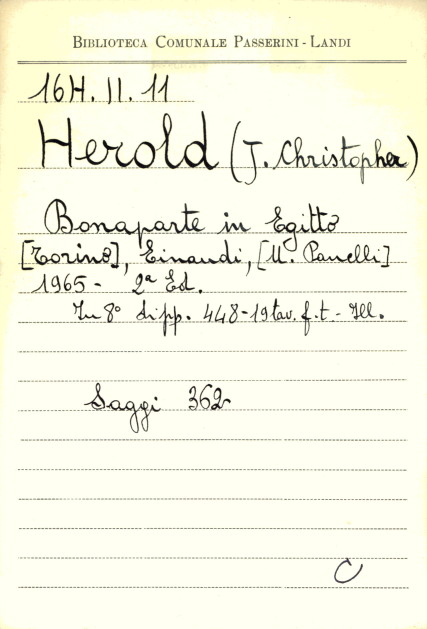 BIBLIOTECA COMUNALE PASSERINI - LANDI
16H. II. 11
Herold (J. Christopher)
Bonaparte in Egitto
[Torino], Einaudi, [U. Panelli]
1965 - 2ª Ed.
In 8° di pp. 448-19 tav. f. t. - Ill.
Saggi 362
C